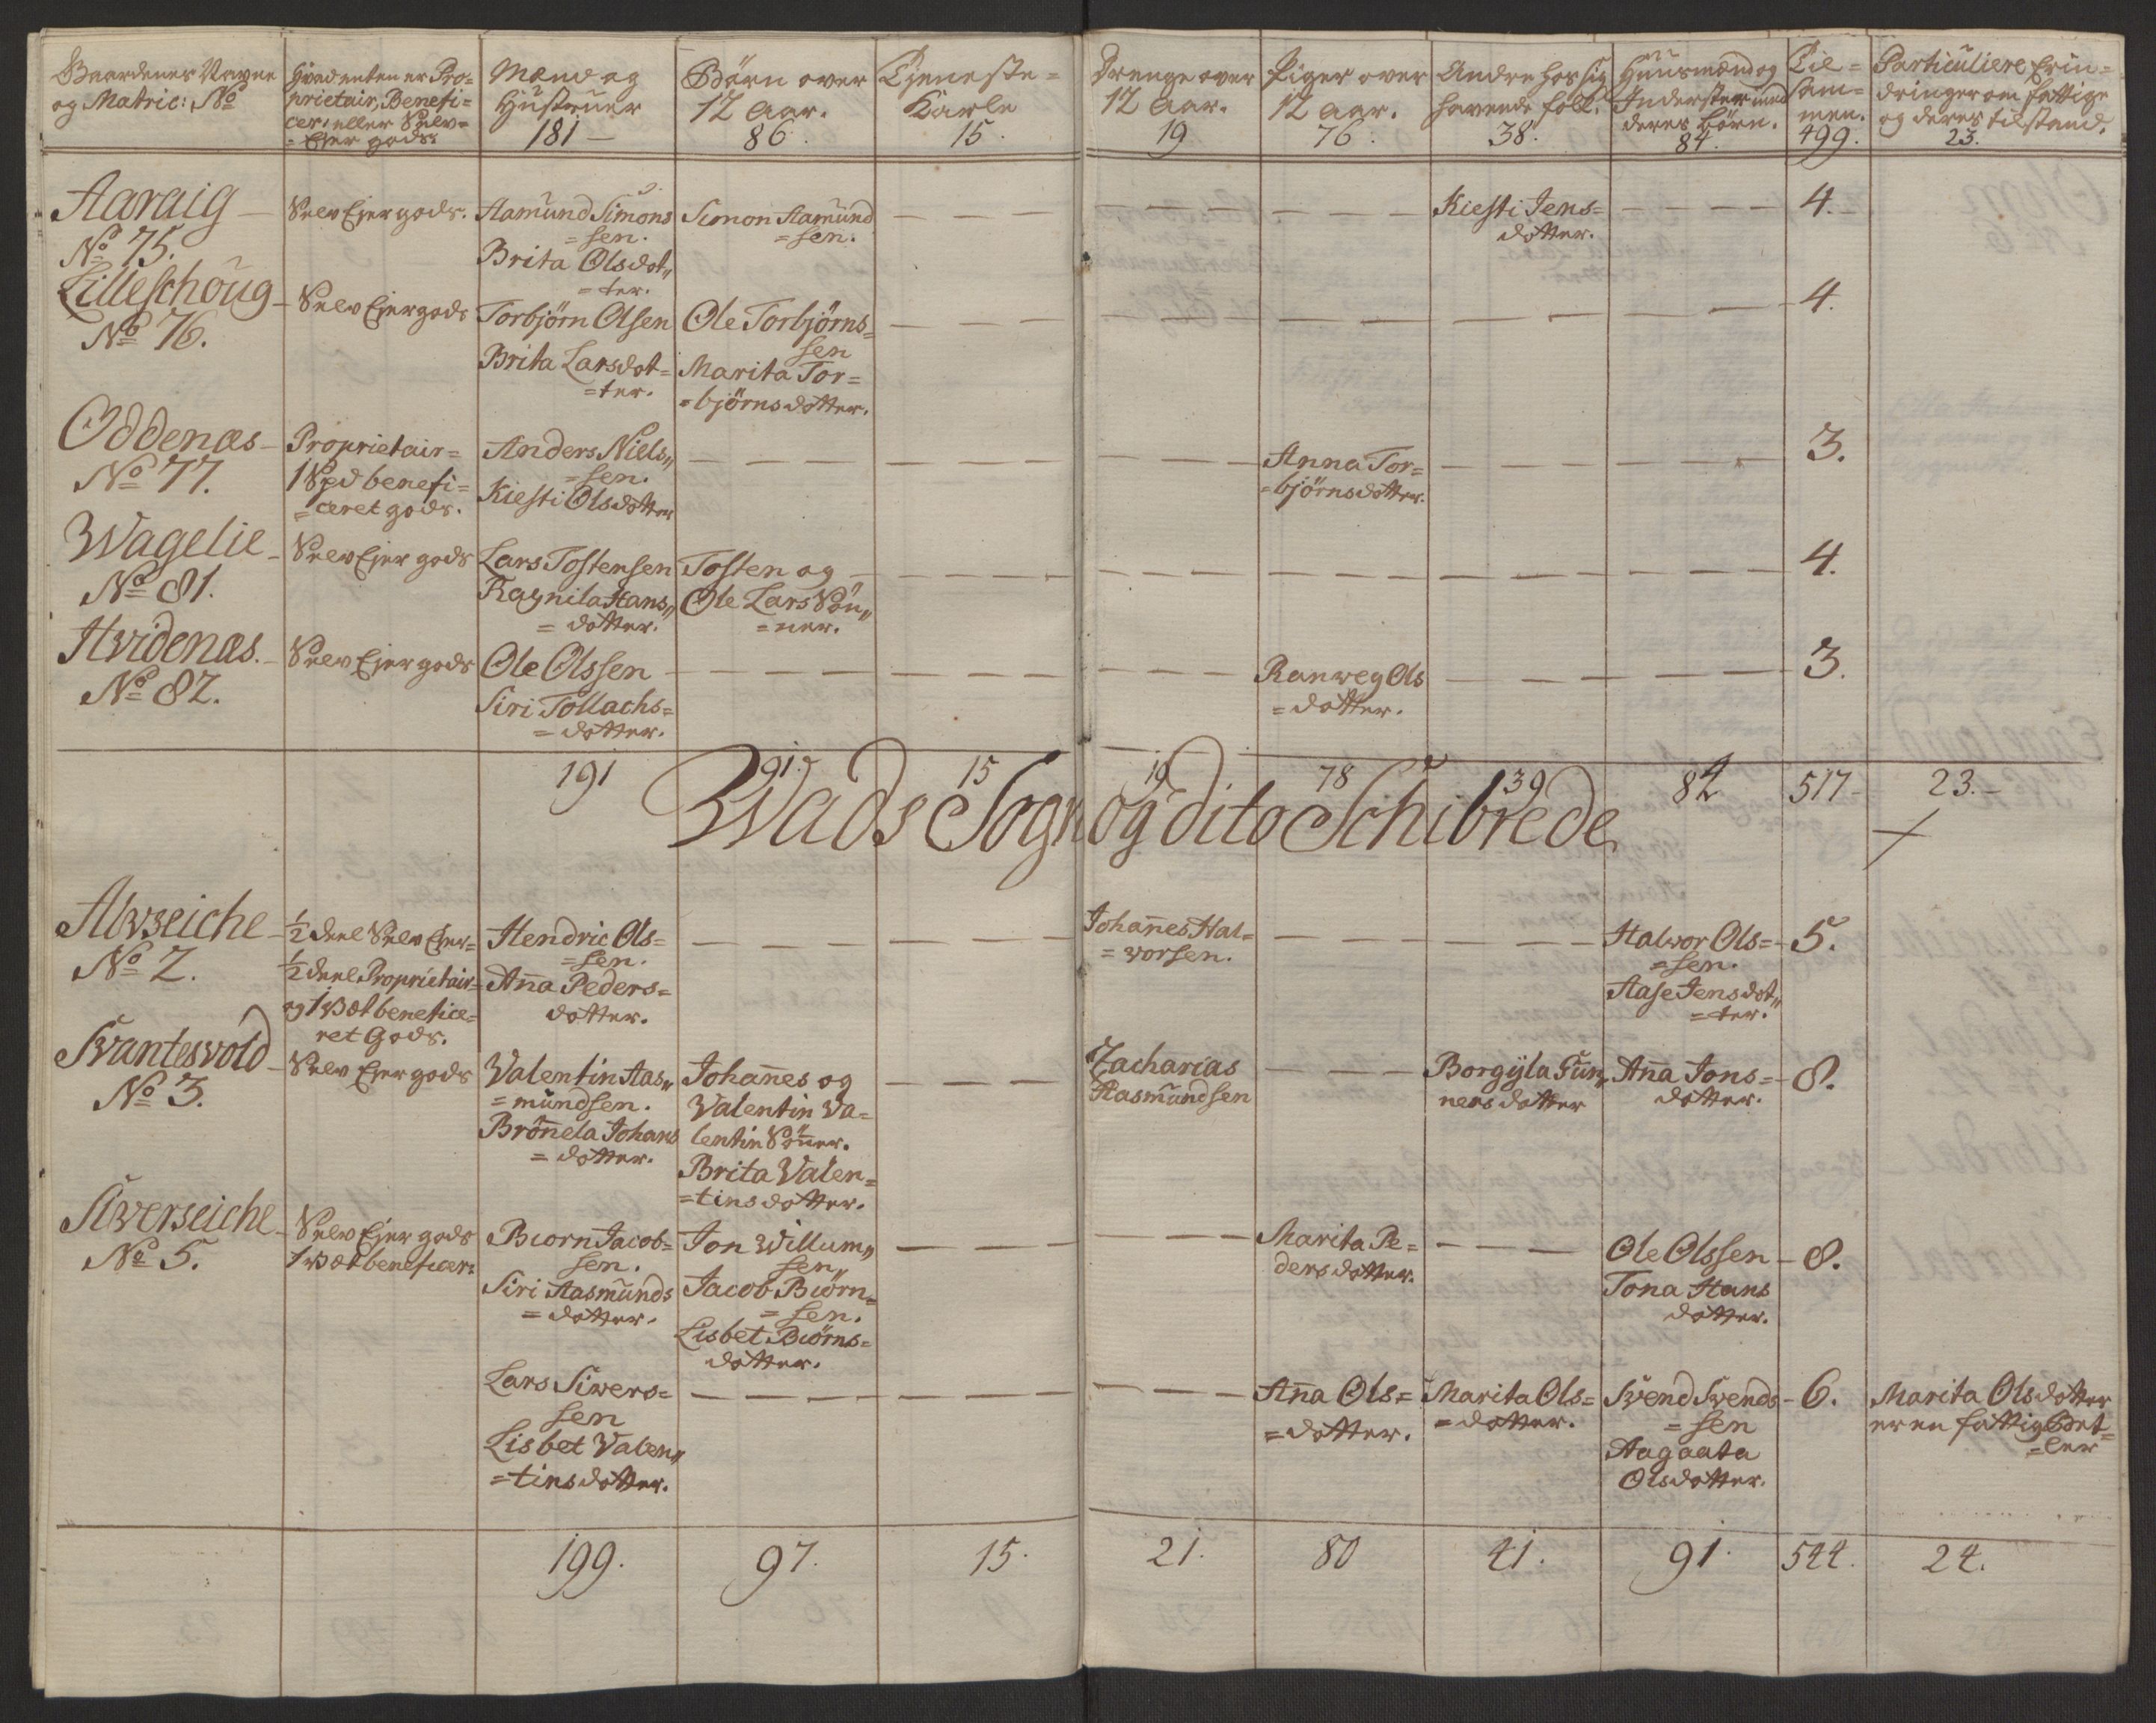 Gaardenes Navne
og Matric: No
Hvad enten er Pro=
prietair, Benefi=
cer: eller Selv=
=Ejer gods:
Mænd og
Hustruer
181 —
Börn over
12 Aar.
86.
Tjeneste=
Karle
15.
Drenge over
12 Aar.
19
Piger over
12 Aar.
76.
Andre hos sig
havende folk.
38.
Huusmænd og
Inderster med
deres börn.
84.
Til=
sam=
men.
499.
Particuliere Erin=
dringer om fattige
og deres tilstand.
23.
Aaraig —
No 75.
Selv Ejer gods.
Aamund Simons
=sen.
Brita Olsdot„
=ter.
Simon Aamund
=sen.
— — — — — — — — —
Kiesti Jens=
dotter.
— — — —
4.
Lilleschoug —
No 76.
Selv Ejer gods
Torbjörn Olsen
Brita Larsdot=
=ter.
Ole Torbjörns=
sen
Marita Tor=
=björnsdotter.
— — — — — — — — —
4.
Oddenæs —
No 77.
Proprietair=
1 Spd benefi=
=ceret gods.
Anders Niels„
=sen.
Kiesti Olsdotter
— — — — — — — —
Anna Tor=
=björnsdotter.
— — — — —
3.
Wagelie —
No 81.
Selv Ejer gods
Lars Tostensen
Ragnila Hans„
=dotter.
Tosten og
Ole Lars Sön„
=ner.
— — — — — — — — —
4.
Hvidenæs. —
No 82.
Selv Ejer gods
Ole Olssen
Siri Tollachs=
=dotter.
— — — — — — — —
Ranweg Ols
=dotter.
— — — — —
3.
191 91. 15 19 78 39 84 517 — 23. —
Wads Sogn og dito Schibrede
Alwseiche —
No 2.
1/2 deel Selv Ejer=
1/2 deel Proprietair=
og 1 Wet benefice=
ret Gods.
Hendric Ols=
=sen.
Anna Peders=
dotter.
— — — — — —
Johannes Hal=
=vorsen.
— — — — — —
Halvor Ols=
=sen.
Aase Jensdot„
=ter.
5.
Svantesvold —
No 3.
Selv Ejer gods
Valentin Aas„
=mundsen.
Brönnela Johans
=dotter.
Johannes og
Valentin Va=
lentin Sönner.
Brita Valen=
=tinsdotter.
— — — —
Zacharias
Aasmundsen
— — —
Borgyla Fun„
nersdotter
Anna Jons=
dotter.
8.
Siverseiche —
No 5.
Selv Ejer gods
1 Wet beneficer:
Biorn Jacob=
sen.
Siri Aasmunds
=dotter.
Jon Willum„
sen„
Jacob Biörn=
=sen.
Lisbet Biörns=
dotter.
— — — — — —
Marita Pe=
dersdotter.
— — —
Ole Olssen
Tona Hans
dotter.
— 8.
Lars Sivers=
sen
Lisbet Valen„
=tinsdotter.
— — — — — — — —
Anna Ols=
=dotter.
Marita Ols=
=dotter.
Svend Svends
=sen
Aagaata
Olsdotter.
— 6.
Marita Olsdotter
er en fattig Bet=
=ler
199. 97. 15. 21. 80 41. 91. 544. 24.